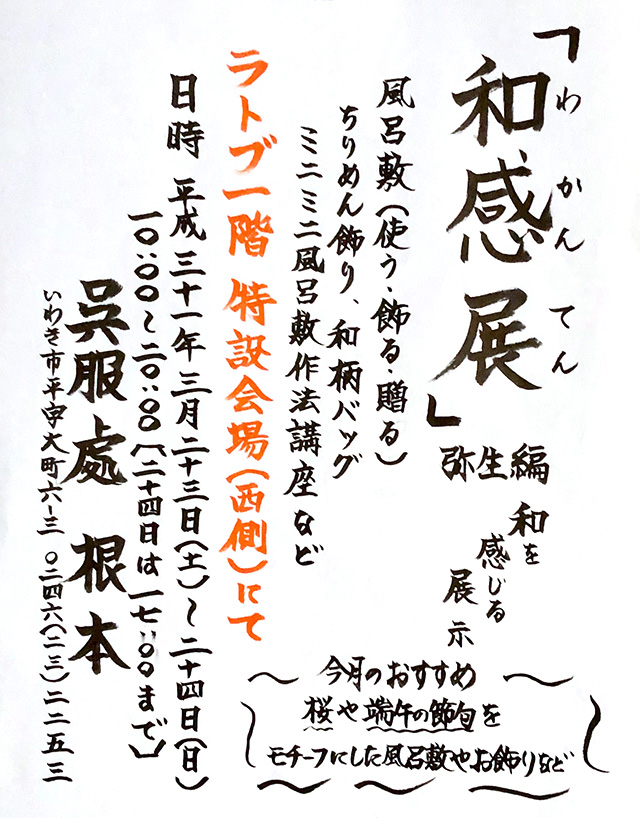 「和感展」
わかんてん
弥生編
和を
感じる
展示
風呂敷(使う・飾る・贈る)
ちりめん飾り、和柄バッグ
ミニミニ風呂敷作法講座など
ラトブ一階 特設会場(西側)にて
日時 平成三十一年三月二十三日(土)〜二十四日(日)
一〇:〇〇〜二〇:〇〇(二十四日は一七:〇〇まで)
呉服處 根本
いわき市平字大町六-三 〇二四六(二三)二二五三
今月のおすすめ
桜や端午の節句を
モチーフにした風呂敷やお飾りなど